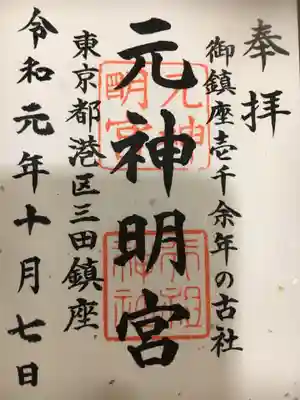 奉拝
御鎮座壱千余年の古社
元神明宮
元神明宮
東京都港区三田鎮座
令和元年十月七日